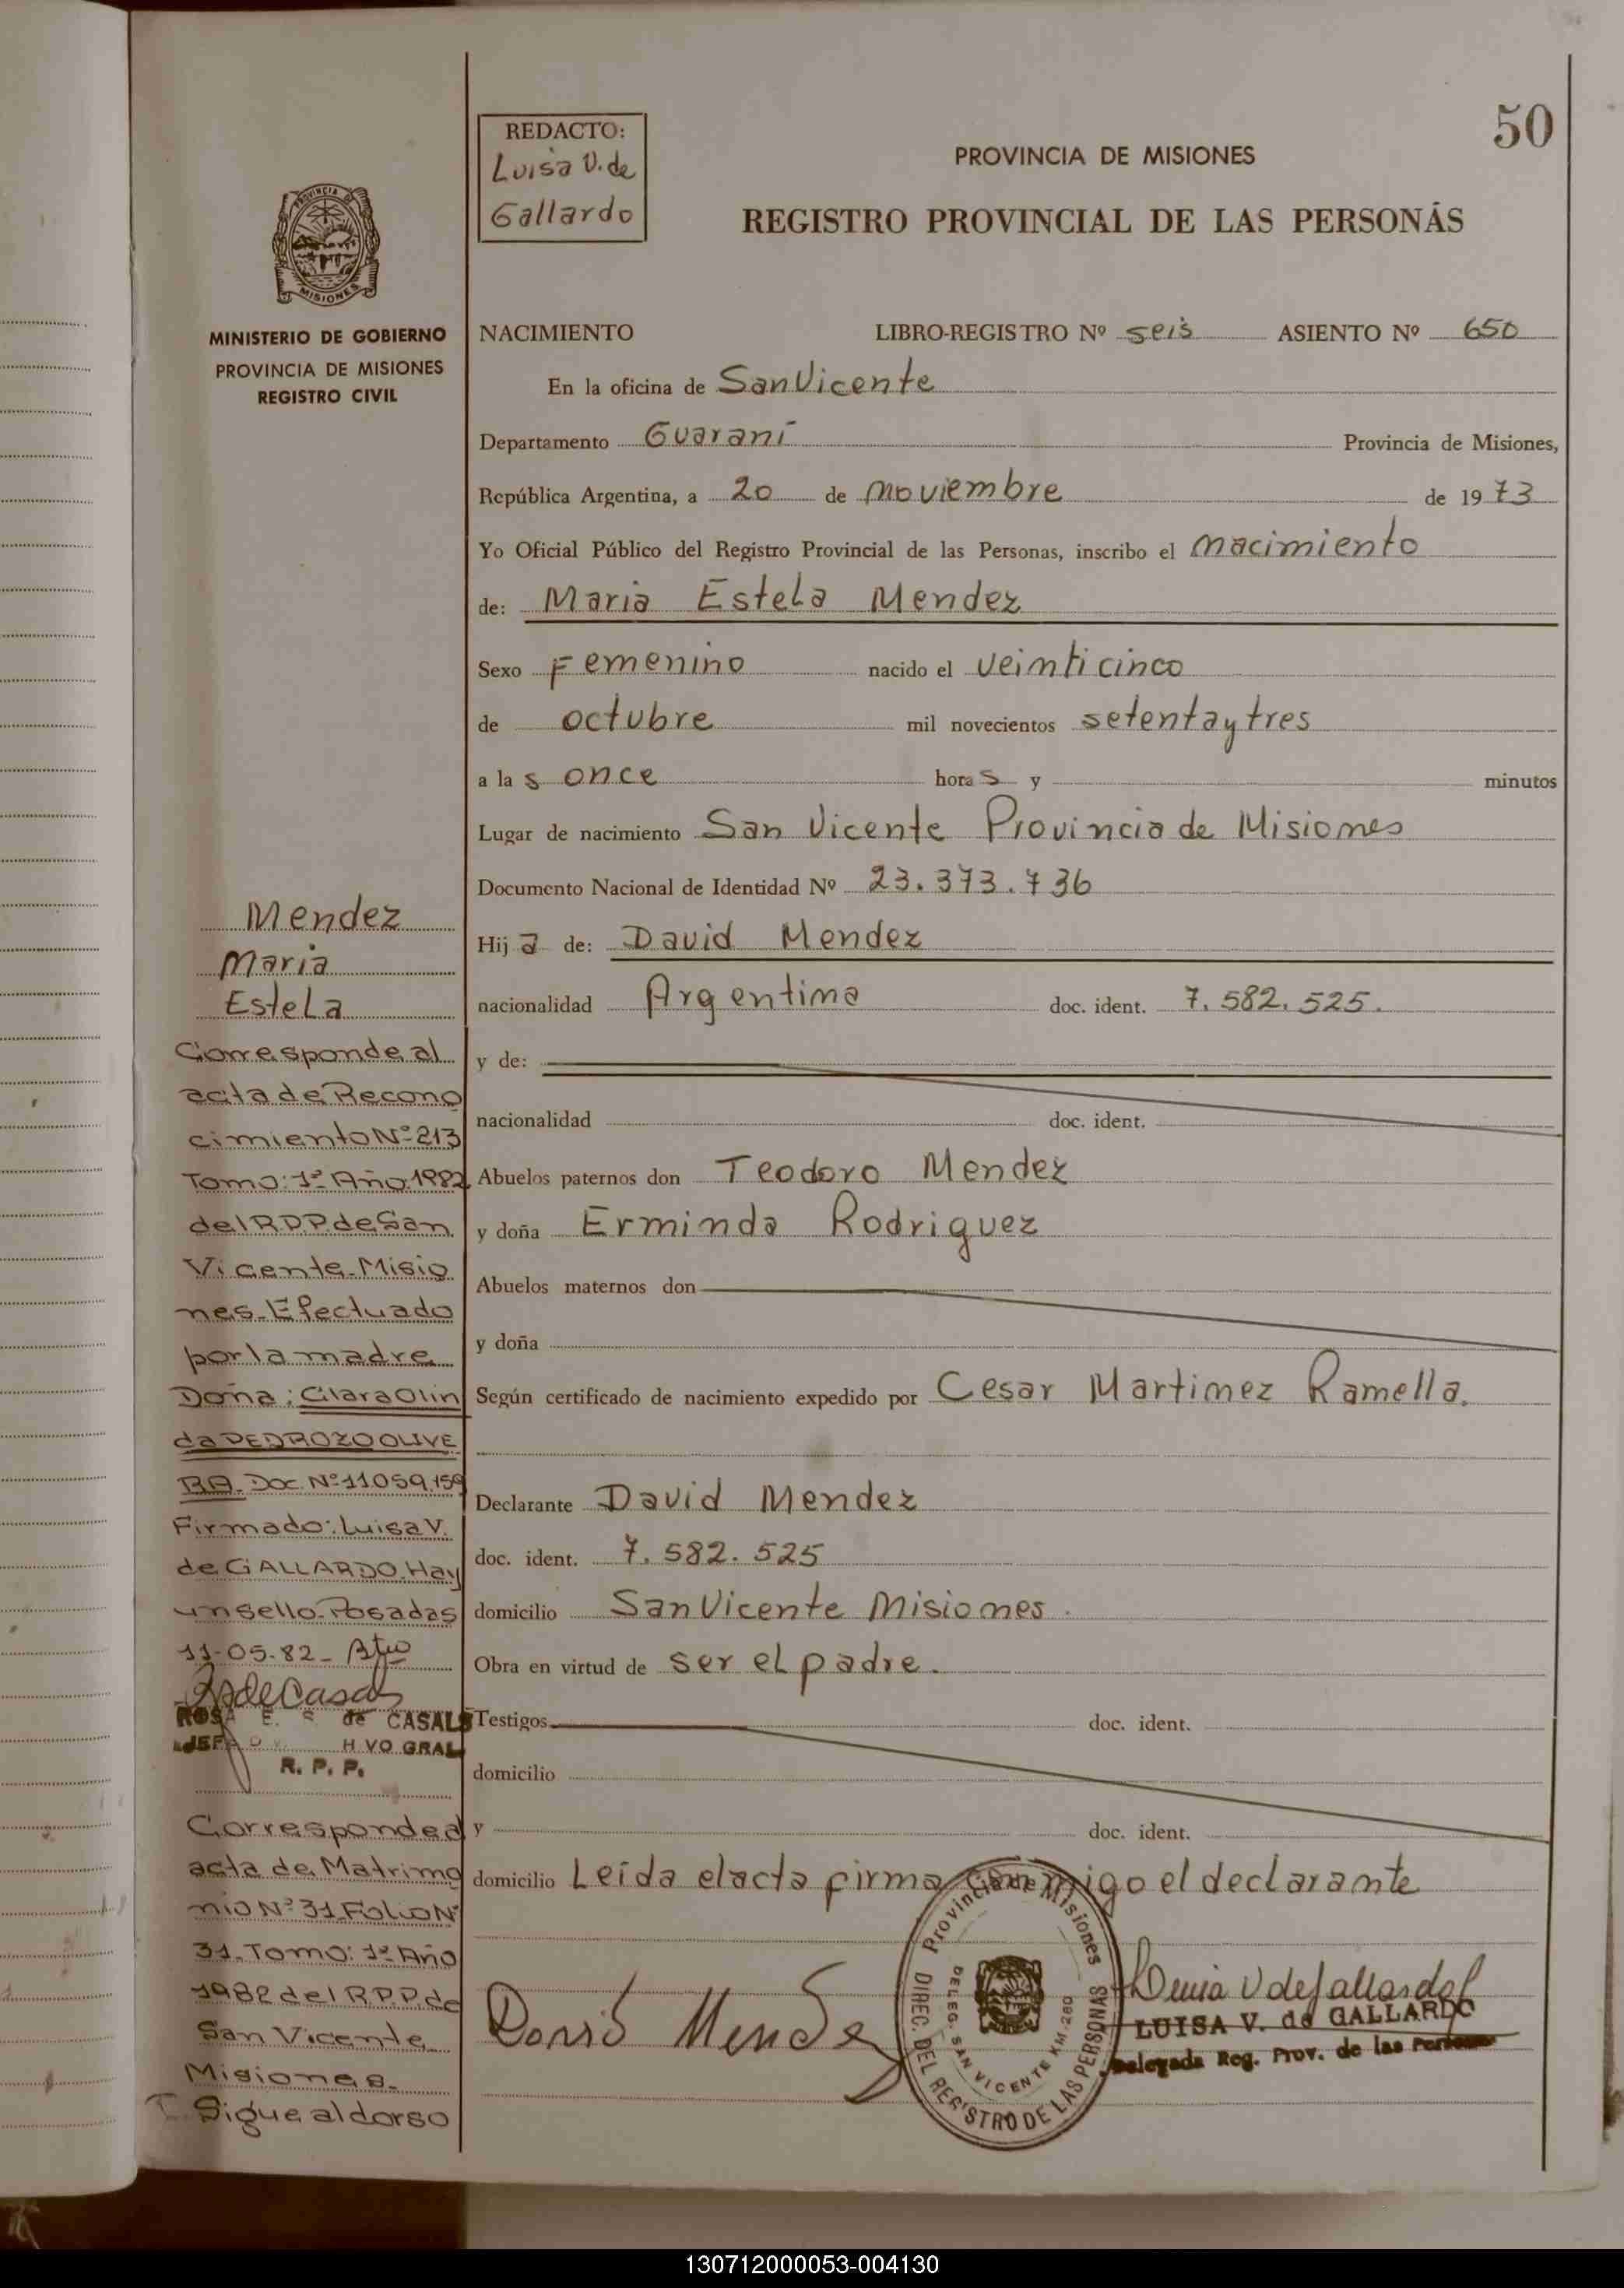 50
REDACTO:
Luisa V. de
Gallardo
PROVINCIA DE MISIONES
REGISTRO PROVINCIAL DE LAS PERSONAS
PROVINCIA DE
MISIONES
MINISTERIO DE GOBIERNO
PROVINCIA DE MISIONES
REGISTRO CIVIL
NACIMIENTO LIBRO-REGISTRO Nº seis ASIENTO Nº 650
En la oficina de San Vicente
Departamento Guaraní Provincia de Misiones,
República Argentina, a 20 de noviembre de 1973
Yo Oficial Público del Registro Provincial de las Personas, inscribo el nacimiento
de: Maria Estela Mendez
Sexo Femenino nacido el veinticinco
de octubre mil novecientos setenta y tres
a las once horas y minutos
Lugar de nacimiento San Vicente Provincia de Misiones
Documento Nacional de Identidad Nº 23.373.736
Hija de: David Mendez
nacionalidad Argentina doc. ident. 7.582.525.
y de:
nacionalidad doc. ident.
Abuelos paternos don Teodoro Mendez
y doña Erminda Rodriguez
Abuelos maternos don
y doña
Según certificado de nacimiento expedido por Cesar Martinez Ramella.
Declarante David Mendez
doc. ident. 7.582.525
domicilio San Vicente Misiones.
Obra en virtud de ser el padre.
Testigos doc. ident.
domicilio
y doc. ident.
domicilio Leída el acta firma conmigo el declarante
David Mendez
Luisa V de Gallardo
LUISA V. de GALLARDO
Delegada Reg. Prov. de las Personas
Provincia de Misiones
DIREC. DEL REGISTRO DE LAS PERSONAS
DELEG. SAN VICENTE KM-260
Mendez
Maria
Estela
Corresponde al
acta de Recono
cimiento Nº 213
Tomo: 1º Año 1982
del R.P.P. de San
Vicente-Misio
nes-Efectuado
por la madre
Doña: Clara Olin
da PEDROZO OLIVE
RA. Doc. Nº 11059.159
Firmado: Luisa V.
de GALLARDO. Hay
un sello-Posadas
11-05-82-
ROSA E. de CASALS
JEFA H VO GRAL
R. P. P.
Corresponde a
acta de Matrimo
nio Nº 31 Folio Nº
31. Tomo: 1º Año
1982 del R.P.P. de
San Vicente
Misiones-
Sigue al dorso
130712000053-004130